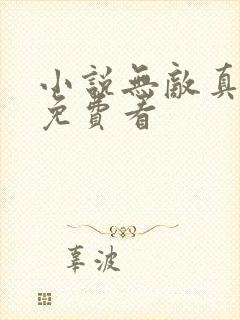 小說無敵真
免費看
辜波